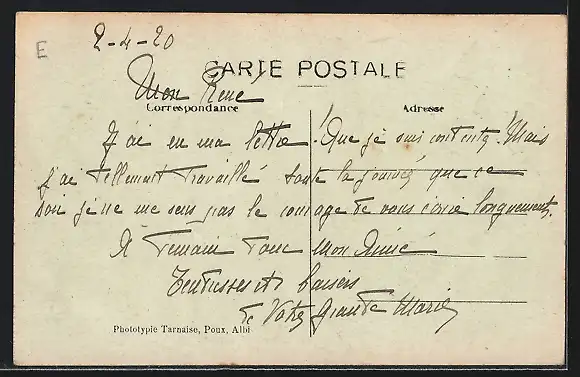 E
2-4-20
CARTE POSTALE
Mon René
Correspondance
Adresse
J'ai eu ma lettre ! Que je suis contente ! Mais
j'ai tellement travaillé toute la journée que ce
soir je ne me sens pas le courage de vous écrire longuement.
A demain donc mon Aimé
Tendresses et baisers
de Votre grande Marie
Phototypie Tarnaise, Poux, Albi